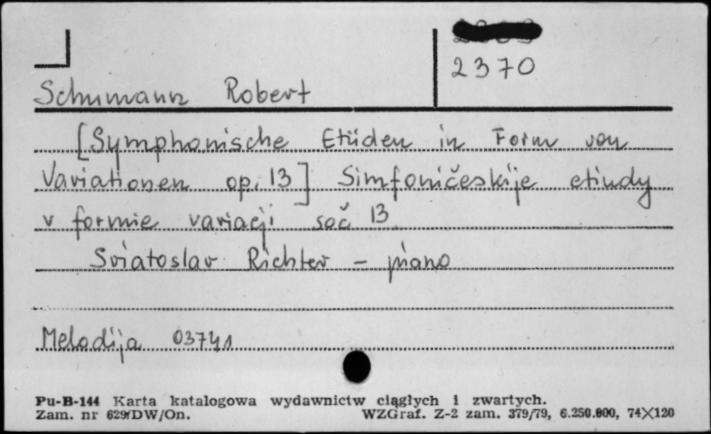 2370
Schumann Robert
[Symphonische Etüden in Form von
Variationen op. 13] Simfoničeskije etiudy
v formie variacji soč 13
Sviatoslav Richter – piano
Melodija 03741
Pu-B-144 Karta katalogowa wydawnictw ciągłych i zwartych.
Zam. nr 629/DW/On. WZGraf. Z-2 zam. 379/79, 6.250.000, 74X120